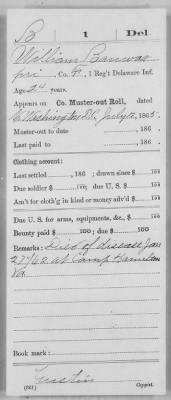 B 1 Del.
William
Co. F, 1 Reg't Delaware Inf.
Age 24 years.
Appears on Co. Muster-out Roll, dated
Washington DC, July 12, 1865.
Muster-out to date , 186 .
Last paid to , 186 .
Clothing account:
Last settled , 186 ; drawn since $ 100
Due soldier $ 100; due U. S. $ 100
Am't for cloth'g in kind or money adv'd $ 100
Due U. S. for arms, equipments, &c., $ 100
Bounty paid $ 100; due $ 100
Remarks: Died of disease Jan
27/62 at Camp Hamilton
Va.
Book mark:
(861) Copyist.